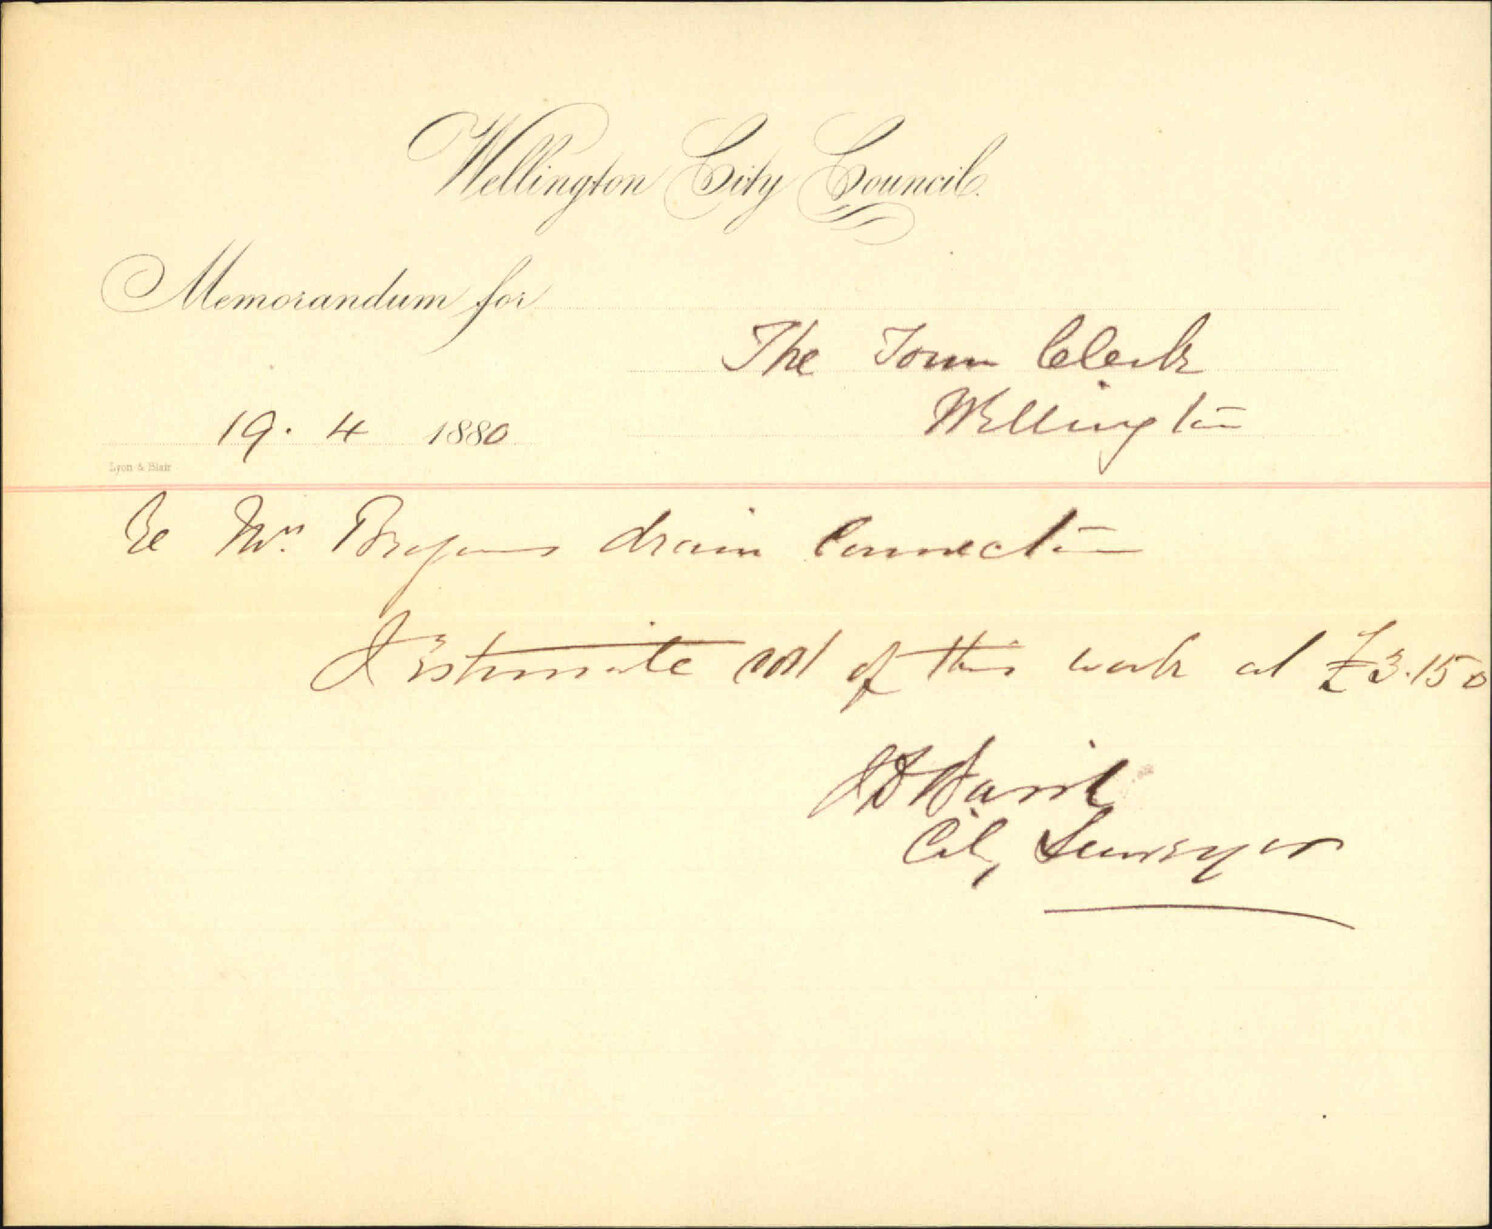 Wellington City Council.
Memorandum for
The Town Clerk
Wellington
19. 4 1880
Lyon & Blair
Re Mrs. drain Connection
I Estimate cost of this work at £3.15.0
City Surveyor